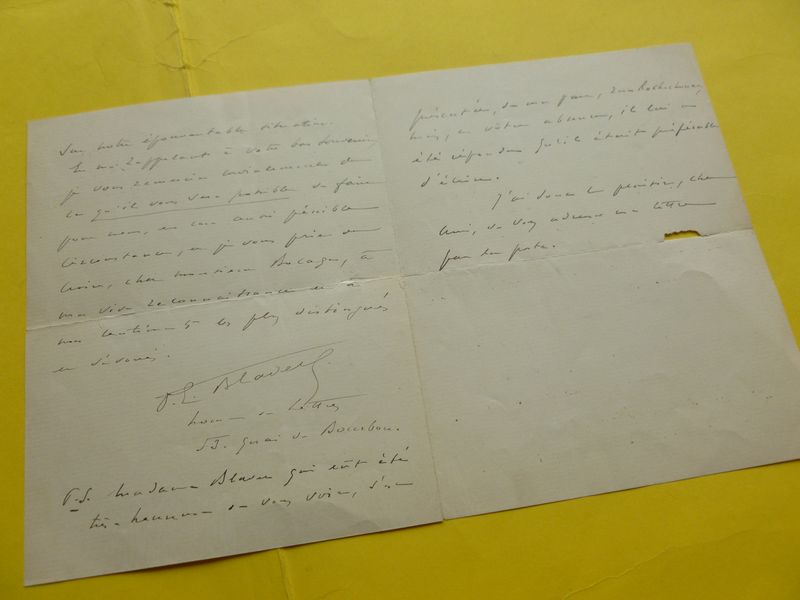 sur notre épouvantable situation.
En me rappelant à votre bon souvenir
je vous remercie cordialement de
ce qu'il vous sera possible de faire
pour nous, en une aussi pénible
circonstance, et je vous prie de
croire, cher monsieur Bocage, à
ma vive reconnaissance et à
mes sentiments les plus distingués
et dévoués.
homme de lettres
53. quai de Bourbon.
P.S. Madame qui eût été
très heureuse de vous voir, s'est
présentée, de ma part,
mais, en votre absence, il lui a
été répondu qu'il était préférable
d'écrire.
J'ai donc le plaisir, cher
ami, de vous adresser ma lettre
par la poste.